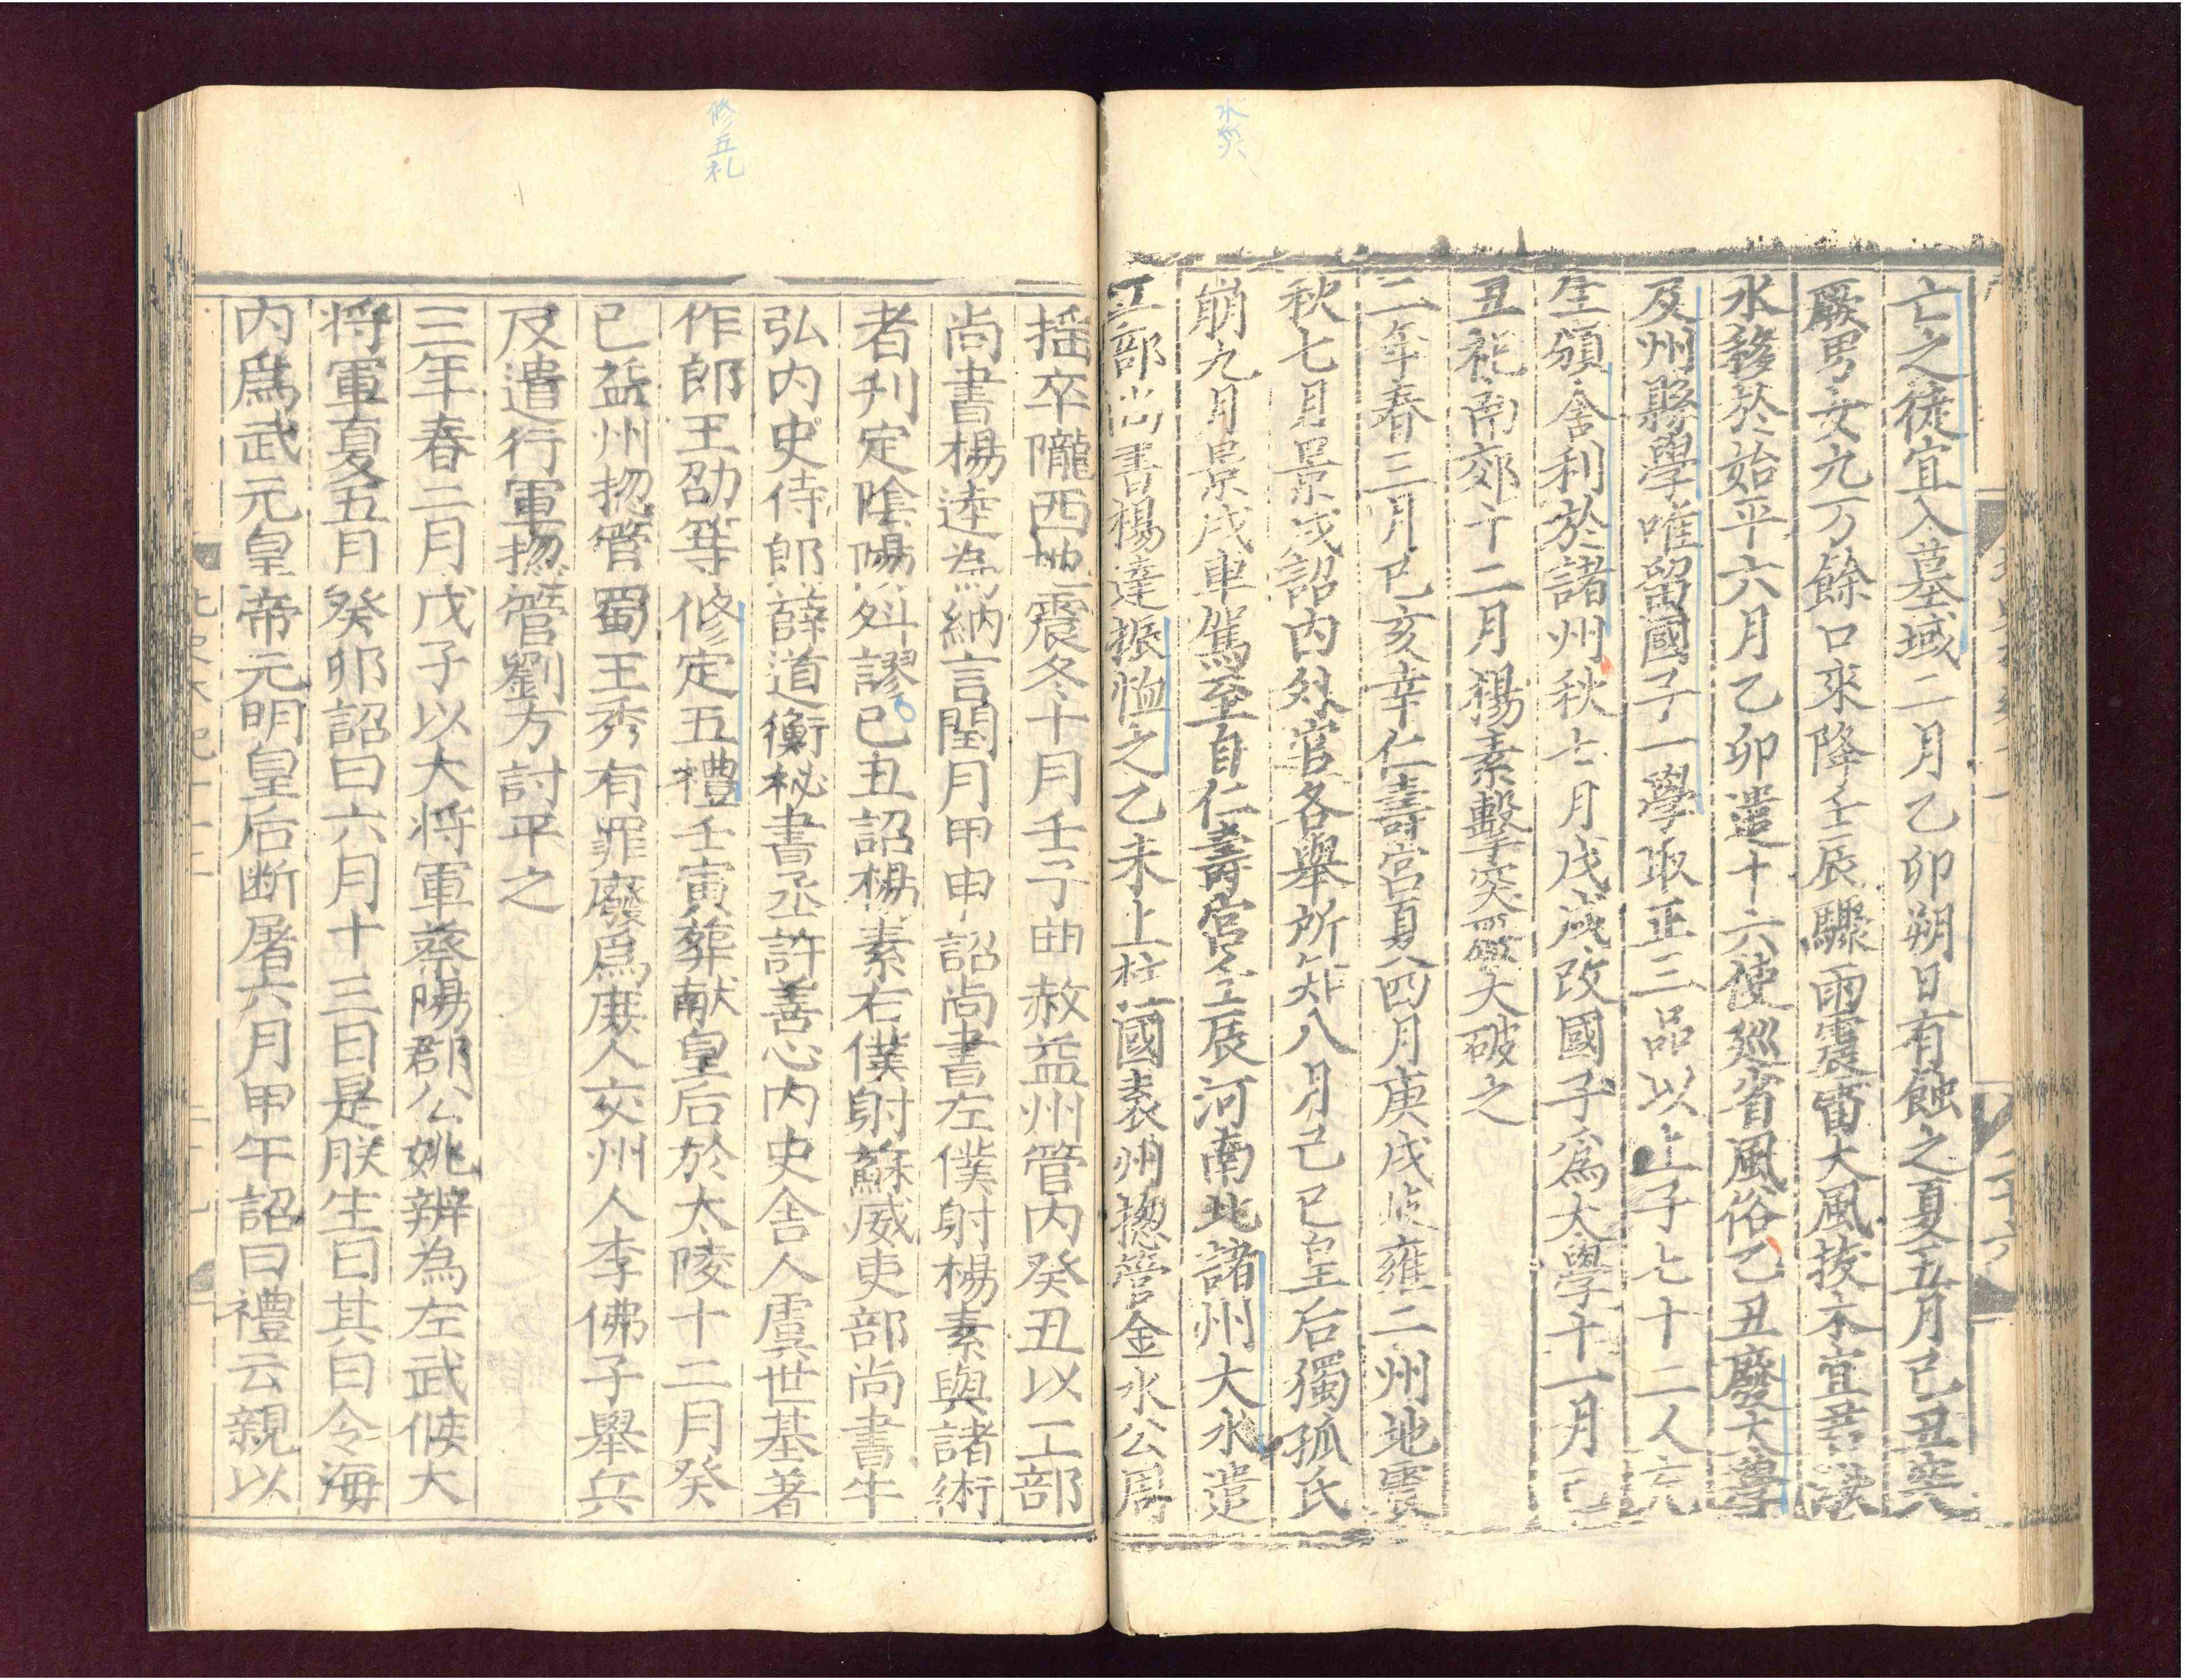 水災
亡之徒宜入墓域二月乙卯朔日有蝕之夏五月己丑突
厥男女九万餘口來降壬辰驟雨震雷大風拔木宜君湫
水移於始平六月乙卯遣十六使巡省風俗乙丑廢大學
及州縣學唯留國子一學取正三品以上子七十二人充
生頒舍利於諸州秋七月戊戌改國子爲太學十一月己
丑祀南郊十二月楊素擊突厥大破之
二年春三月己亥幸仁壽宮夏四月庚戌岐雍二州地震
秋七月景戌詔内外官各舉所知八月己巳皇后獨孤氏
崩九月景戌車駕至自仁壽宮壬辰河南北諸州大水遣
工部尚書楊達振恤之乙未上柱國袁州揔管金水公周
修五礼
揺卒隴西地震冬十月壬子曲赦益州管内癸丑以工部
尚書楊達為納言閏月甲申詔尚書左僕射楊素與諸術
者刊定陰陽舛謬己丑詔楊素右僕射蘇威吏部尚書牛
弘内史侍郎薛道衡秘書丞許善心内史舍人虞世基著
作郎王劭等修定五禮壬寅葬献皇后於太陵十二月癸
已益州揔管蜀王秀有罪廢爲庻人交州人李佛子舉兵
反遣行軍揔管劉方討平之
三年春二月戊子以大将軍蔡陽郡公姚辨為左武候大
将軍夏五月癸卯詔曰六月十三日是朕生日其日令海
内爲武元皇帝元明皇后断屠六月甲午詔曰禮云親以